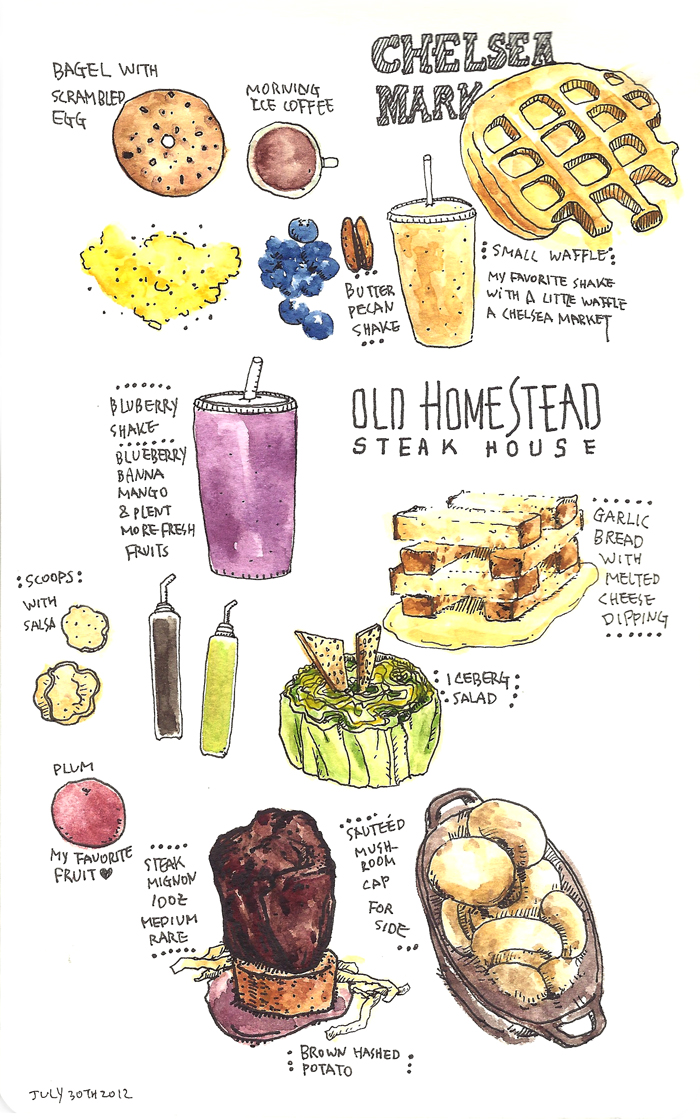 BAGEL WITH
SCRAMBLED
EGG
MORNING
ICE COFFEE
CHELSEA
MARK
SMALL WAFFLE
MY FAVORITE SHAKE
WITH A LITTLE WAFFLE
A CHELSEA MARKET
BUTTER
PECAN
SHAKE
BLUBERRY
SHAKE
BLUEBERRY
BANNA
MANGO
& PLENT
MORE FRESH
FRUITS
OLD HOMESTEAD
STEAK HOUSE
GARLIC
BREAD
WITH
MELTED
CHEESE
DIPPING
SCOOPS
WITH
SALSA
ICEBERG
SALAD
PLUM
MY FAVORITE
FRUIT
STEAK
MIGNON
10OZ
MEDIUM
RARE
SAUTÉED
MUSH-
ROOM
CAP
FOR
SIDE
BROWN HASHED
POTATO
JULY 30TH 2012